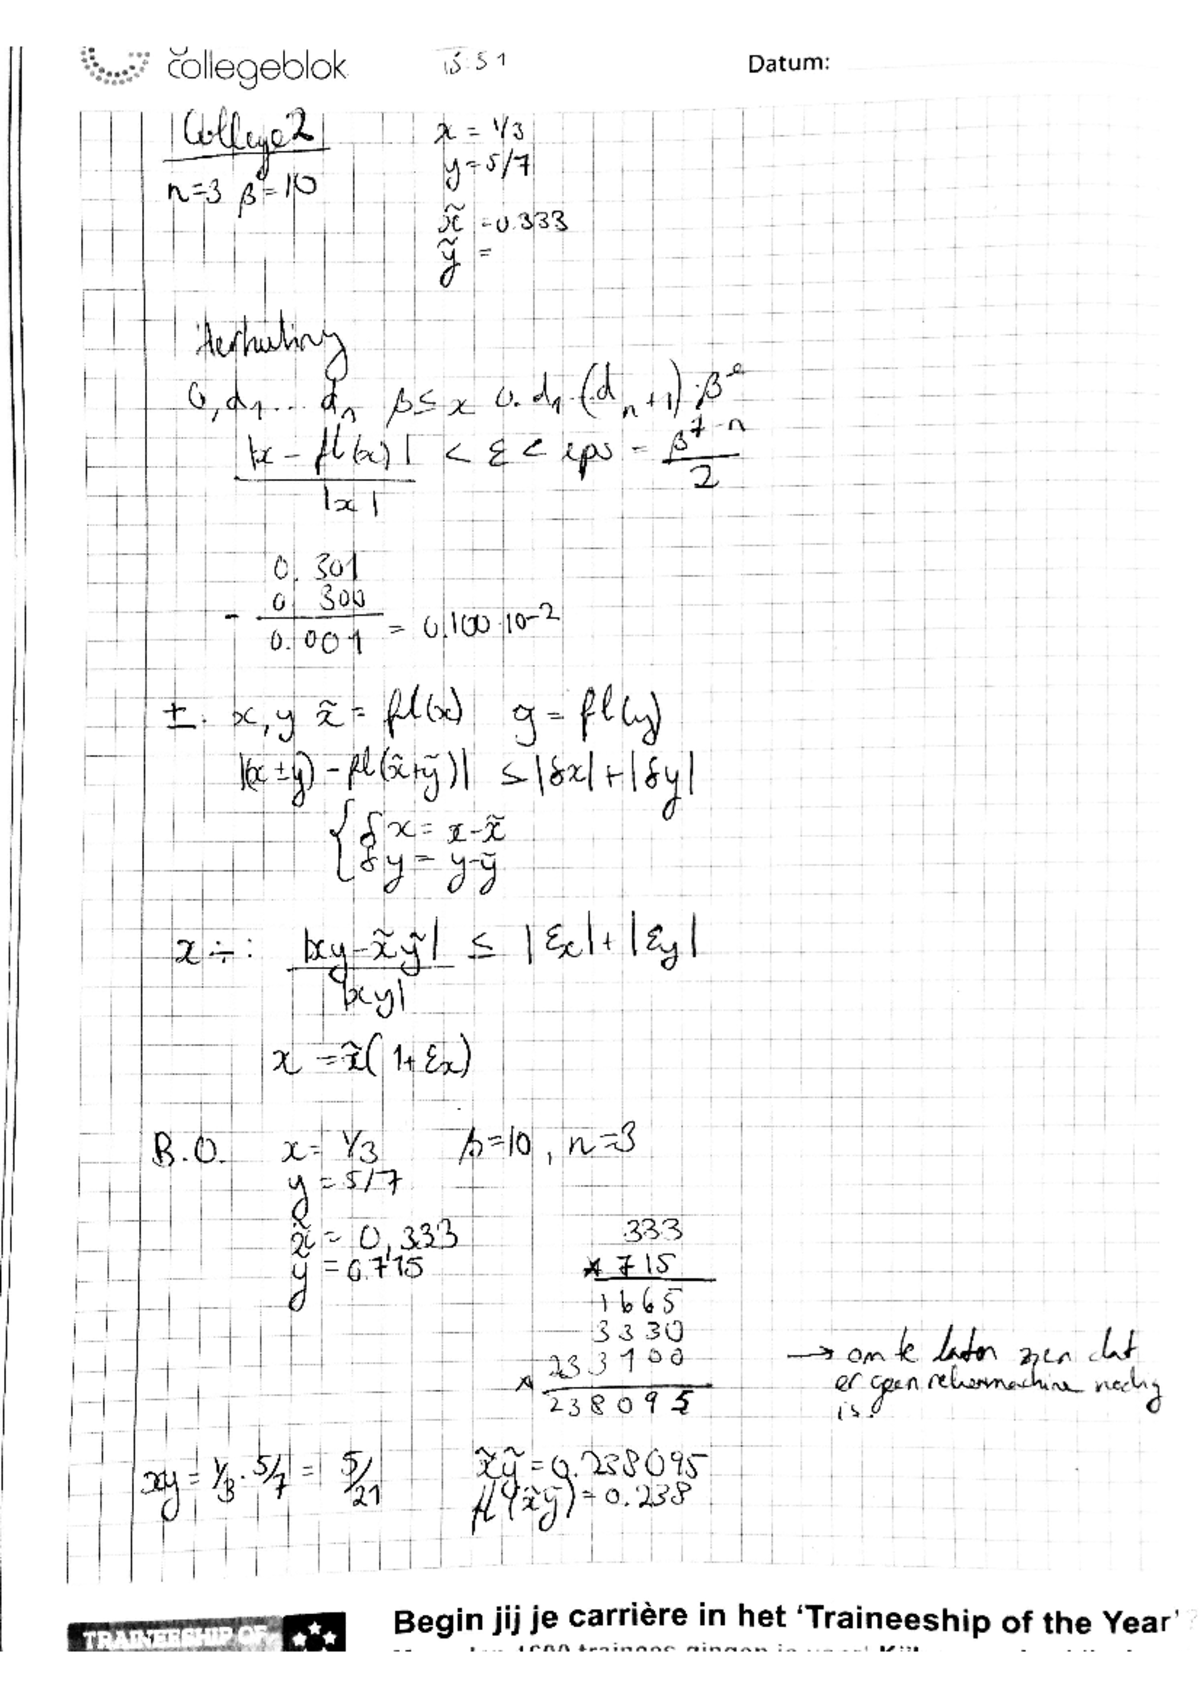 collegeblok 15:51 Datum:
College 2
n=3 β=10
x = 1/3
y = 5/7
x̃ = 0.333
ỹ =
Herhaling
0,d1... dn β ≤ x 0.d1.(dn+1).β^e
|x - fl(x)| / |x| < ε < eps = β^1-n / 2
0. 301
0 300
- 0.001 = 0.100 10^-2
±. x, y x̃ = fl(x) ỹ = fl(y)
|(x±y) - fl(x̃+ỹ)| ≤ |δx| + |δy|
{ δx = x-x̃
δy = y-ỹ
x ÷: |xy-x̃ỹ| / |xy| ≤ |εx| + |εy|
x = x̃(1+εx)
B.O. x = 1/3 β=10, n=3
y = 5/7
x̃ = 0,333
ỹ = 0.715
333
* 715
1665
3330
233100
238095
→ om te laten zien dat
er geen rekenmachine nodig
is.
xy = 1/3 · 5/7 = 5/21
x̃ỹ = 0.238095
fl(x̃ỹ) = 0.238
TRAINEESHIP OF
Begin jij je carrière in het ‘Traineeship of the Year’?